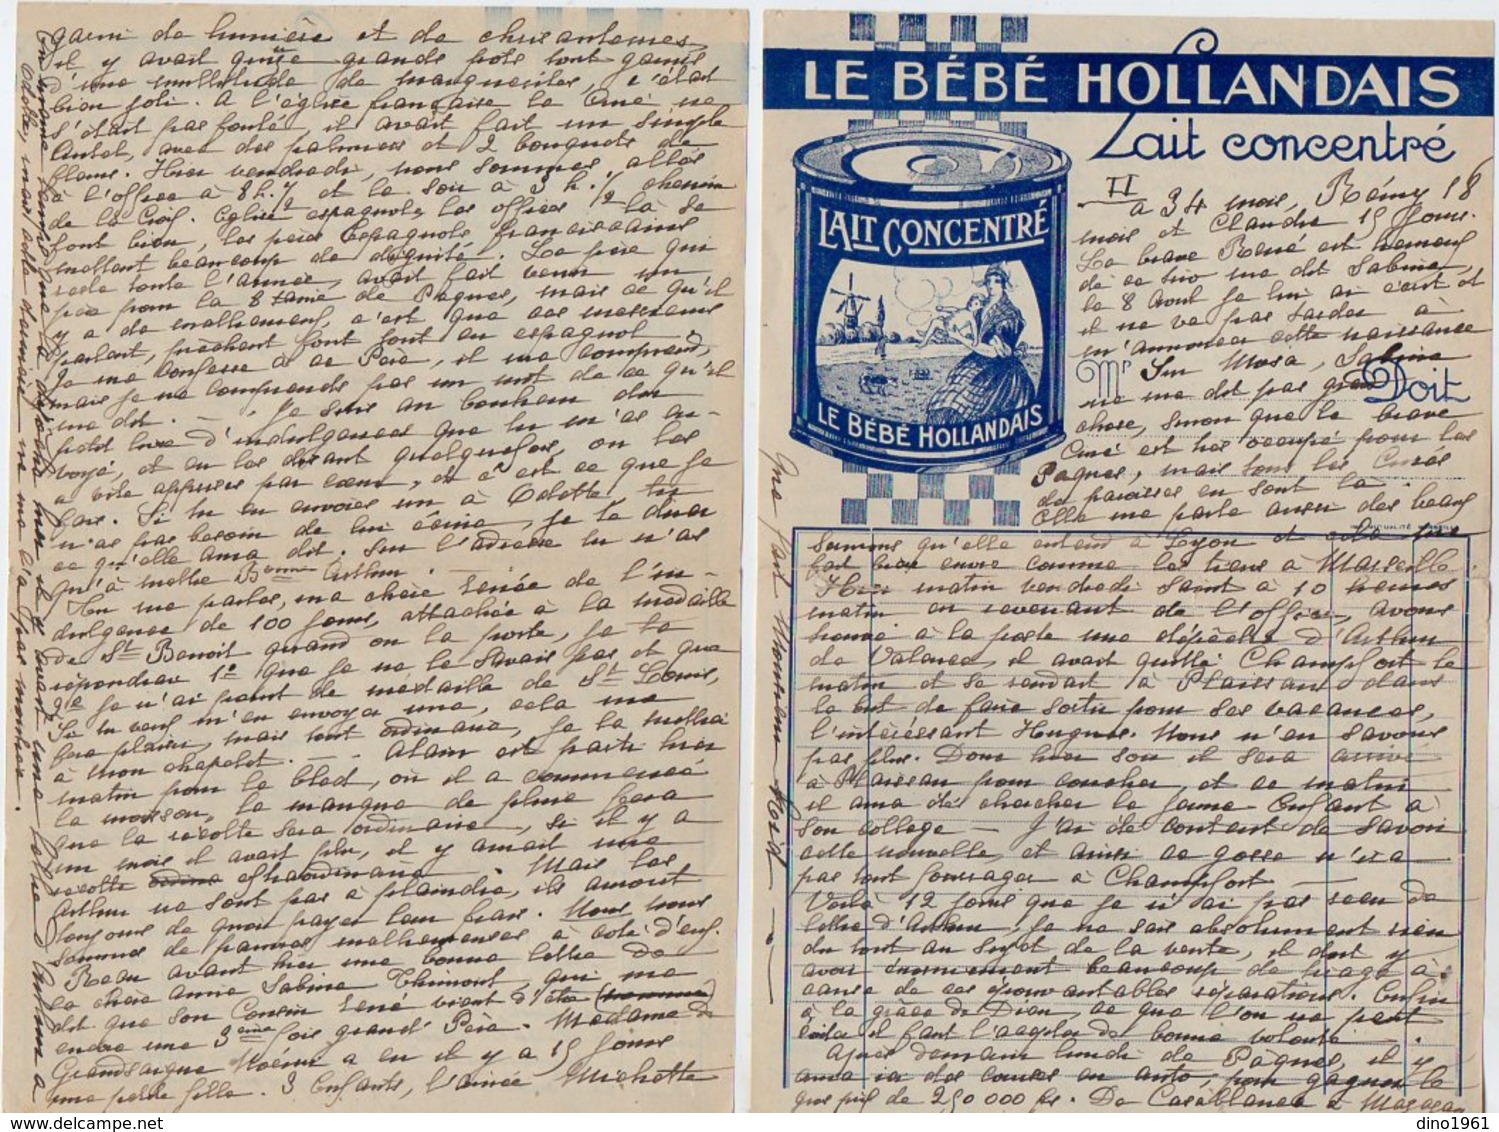 garni de lumière et de chrisantemes,
il y avait quinze grands pots tout garnis
d'une multitude de marguerites, c'était
bien joli. A l'église française le Curé ne
s'était pas foulé, il avait fait un simple
Autel, avec des palmiers et 2 bouquets de
fleurs. Hier vendredi, nous sommes allés
à l'office à 8h.½ et le soir à 3 h.½ chemin
de la Croix. Eglise espagnole, les offices là se
font bien, les pères Espagnols franciscains
mettent beaucoup de dignité. Le père qui
reste toute l'année, avait fait venir un
père pour la 8taine de Pâques, mais ce qu'il
y a de malheureux, c'est que ces messieurs
parlent, prêchent font tout en espagnol
Je me confesse à ce Père, il me comprend,
mais je ne comprends pas un mot de ce qu'il
me dit. — Je suis au bonheur du
petit livre d'indulgences que tu m'as en-
voyé, et en les disant quelquefois, on les
a vite apprises par cœur, et c'est ce que je
fais. Si tu en envoies un à Odette, tu
n'as pas besoin de lui écrire, je te dirai
ce qu'elle aura dit. Sur l'adresse tu n'as
qu'à mettre Bonne Arthur.
Tu me parles, ma chère Renée de l'in-
dulgence de 100 jours, attachée à la médaille
de St Benoit quand on la porte, je te
répondrai 1° que je ne le savais pas et que
2e je n'ai point de médaille de St Louis,
Si tu veux m'en envoyer une, cela me
fera plaisir, mais tout ordinaire, je la mettrai
à mon chapelet. — Alain est parti hier
matin pour le bled, où il a commencé
la moisson, le manque de pluie fera
que la récolte sera ordinaire, si il y a
un mois il avait plu, il y aurait une
récolte extraordinaire. Mais les
Arthur ne sont pas à plaindre, ils auront
toujours de quoi payer leur frais. Nous nous
sommes de pauvres malheureuses à coté d'eux.
Reçu avant hier une bonne lettre de
la chère amie Sabine Thimont qui me
dit que son Cousin René vient d'être
encore une 3eme fois grand' Père. Madame de
Grandsaigne Noémi a eu il y a 15 jours
une petite fille. 3 Enfants, l'ainée Michette
LE BÉBÉ HOLLANDAIS
Lait concentré
LAIT CONCENTRÉ
LE BÉBÉ HOLLANDAIS
II
a 34 mois, Rémy 18
mois et Claudie 15 jours.
Le brave René est heureux
de ce trio me dit Sabine,
le 8 Avril je lui ai écrit et
il ne va pas tarder à
m'annoncer cette naissance
Mr Doit
Sur Mosa, Sabine
ne me dit pas grand
chose, sinon que le brave
Curé est très occupé pour les
Pâques, mais tous les Curés
de paroisses en sont là.
Elle me parle aussi des beaux
sermons qu'elle entend à Lyon et cela me
fait bien envie comme les tiens à Marseille.
Hier matin vendredi saint à 10 heures
matin en revenant de l'office, avons
trouvé à la poste une dépêche d'Arthur
de Valence, il avait quitté Champfort le
matin et se rendait à Plaissan dans
le but de faire sortir pour ses vacances,
l'intéressant Hugues. Nous n'en savons
pas plus. Donc hier soir il sera arrivé
à Plaissan pour coucher, et ce matin
il aura été chercher le jeune Enfant à
son collège — J'ai été content de savoir
cette nouvelle, et ainsi ce gosse n'ira
pas tout fourrager à Champfort —
Voilà 12 jours que je n'ai pas reçu de
lettre d'Arthur, je ne sais absolument rien
du tout au sujet de la vente, il doit y
avoir énormément beaucoup de tirage à
cause de ces épouvantables réparations. Enfin
à la grâce de Dieu, ce que l'on ne peut
éviter il faut l'accepter de bonne volonté —.
Après demain lundi de Pâques, il y
aura ici des courses en auto, pour gagner le
gros prix de 250 000 frs. De Casablanca à Mazagan
dino1961